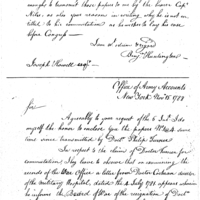 enough to transmit these papers to me by the honr Capt
Niles, as also your reasons in writing why he is not en-
titled to his commutation, as he expects to lay his case
before Congress
I am sir with esteem & regard
Benj Huntington
Joseph Howell esqr
Office of Army Accounts
New York Novr 15 1788
Sir,
Agreeably to your request of the 6 Inst I do
myself the honor to inclose you the papers
time was transmitted by Doctr Philip Turner
In respect to the claim of Doctor Turner for
commutation, I have to observe that on examining the
records of the War Office a letter from Doctor Cochran director
of the military Hospital, dated the 2 July 1781 appears wherein
he informs the Board of War of the resignation of Doctr